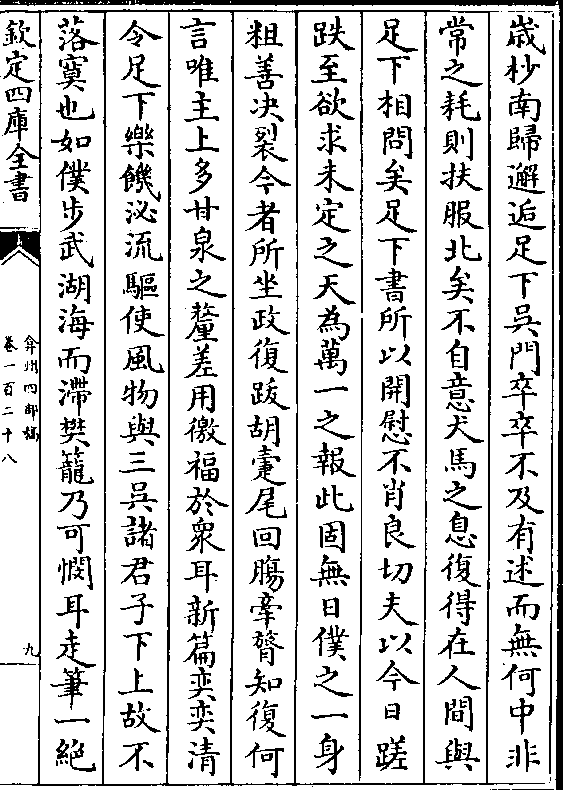 歲杪南歸邂逅足下吳門卒卒不及有述而無何中非
常之耗則扶服北矣不自意犬馬之息復得在人間與
足下相問矣足下書所以開慰不肖良切夫以今日蹉
跌至欲求未定之天為萬一之報此固無日僕之一身
粗善決裂今者所坐政復跋胡疐尾回膓牽臂知復何
言唯主上多甘泉之釐差用徼福於衆耳新篇奕奕清
令足下樂饑泌流驅使風物與三吳諸君子下上故不
落寞也如僕步武湖海而滯樊籠乃可憫耳走筆一絕
欽定四庫全書
弇州四部稿
卷一百二十八
九